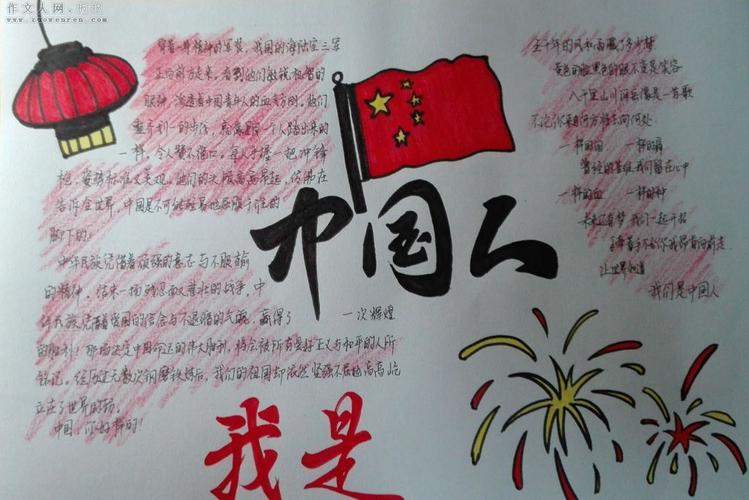 作文人网
www.zuowenren.com
穿着一身精神的军装，我国的海陆空三军
正向前方走来。看到他们散发着智的
眼神，渗透着中国青年人的血气方刚。他们
整齐划一的步伐，就像是一个人踏出来的
一样，令人赞不绝口。每人手握一把冲锋
枪，姿势标准又美观。他们的头颅高高昂起，仿佛在
告诉全世界，中国是不可能轻易屈服于它的
脚下的。
中华民族凭借着顽强的意志与不服输
的精神，结束一场残忍而又悲壮的战争，中
华民族凭借着强国的信念与不退缩的气魄，赢得了 一次辉煌
的胜利！那场决定中国命运的伟大胜利，将会被所有爱好正义与和平的人所
铭记。经历过无数次钢磨铁炼后，我们的祖国却依然坚强不屈地高高屹
立在了世界的东方。
中国，你好样的！
中国人
我是
五千年的风和雨藏了多少梦
黄色的脸黑色的眼不变是笑容
八千里山川河岳像是一首歌
不论你来自何方将去向何处
一样的泪 一样的痛
曾经的苦难我们留在心中
一样的血 一样的种
未来还有梦 我们一起开拓
手牵着手不分你我昂首向前走
让世界知道
我们是中国人